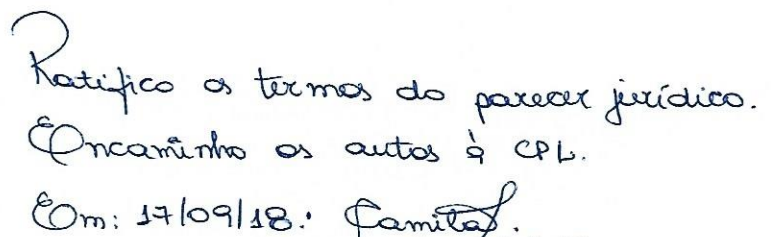 Ratifico os termos do parecer jurídico.
Encaminho os autos à CPL.
Em: 17/09/18. Camila.